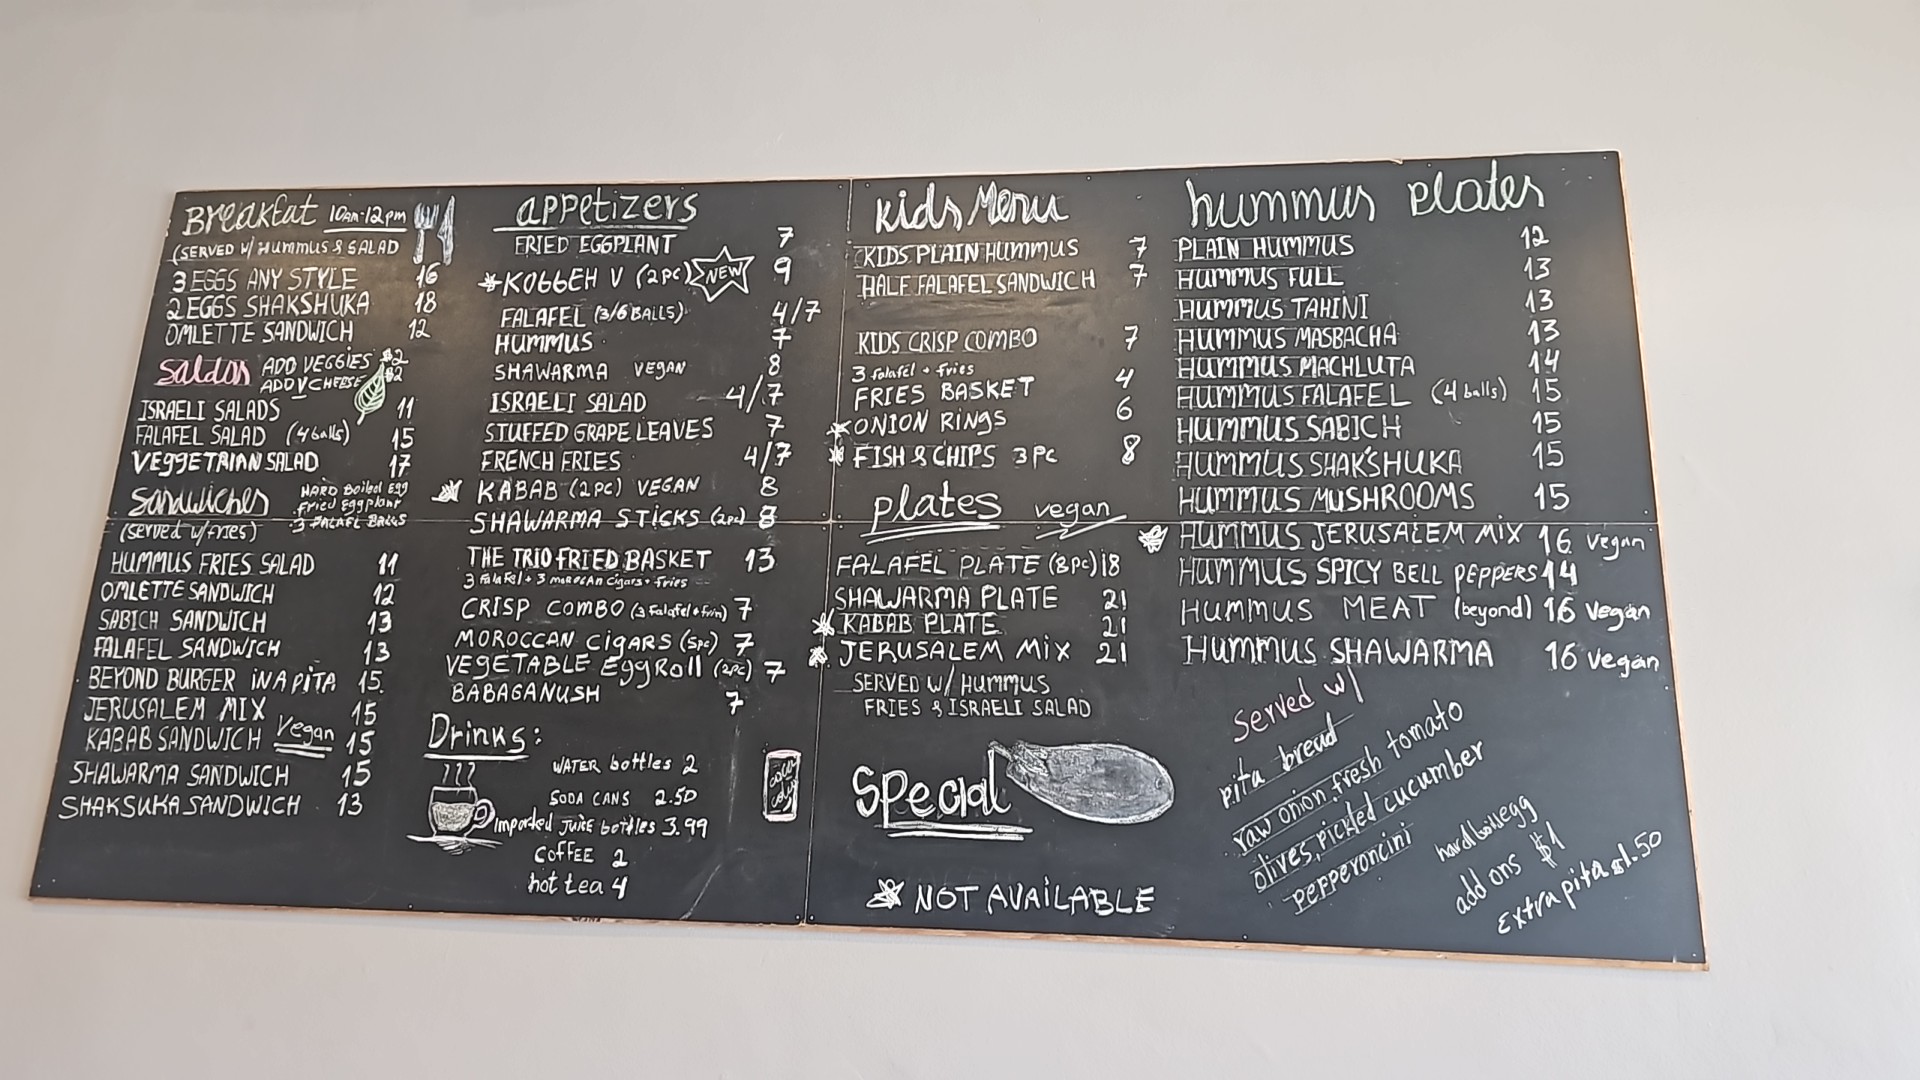 BREAKFAT 10AM-12PM
(SERVED W/ HUMMUS & SALAD
3 EGGS ANY STYLE 16
2 EGGS SHAKSHUKA 18
OMLETTE SANDWICH 12
ADD VEGGIES $2
ADD V CHEESE $2
Saldas
ISRAELI SALADS 11
FALAFEL SALAD (4 balls) 15
VEGGETRIAN SALAD 17
HARD Boiled Egg
Fried Eggplant
3 FALAFEL BALLS
Sandwiches
(served w/fries)
HUMMUS FRIES SALAD 11
OMLETTE SANDWICH 12
SABICH SANDWICH 13
FALAFEL SANDWICH 13
BEYOND BURGER IN A PITA 15
JERUSALEM MIX 15
KABAB SANDWICH Vegan 15
SHAWARMA SANDWICH 15
SHAKSUKA SANDWICH 13
APPETIZERS
FRIED EGGPLANT 7
KOBBEH V (2PC) NEW 9
FALAFEL (3/6 BALLS) 4/7
HUMMUS 7
SHAWARMA VEGAN 8
ISRAELI SALAD 4/7
STUFFED GRAPE LEAVES 7
FRENCH FRIES 4/7
KABAB (2PC) VEGAN 8
SHAWARMA STICKS (2PC) 8
THE TRIO FRIED BASKET 13
3 Falafel + 3 moroccan cigars + fries
CRISP COMBO (3 falafel + fries) 7
MOROCCAN CIGARS (5pc) 7
VEGETABLE Egg Roll (2PC) 7
BABAGANUSH 7
Drinks:
WATER bottles 2
SODA CANS 2.50
Imported JUICE bottles 3.99
COFFEE 2
hot tea 4
coca
cola
Kids Menu
KIDS PLAIN HUMMUS 7
HALF FALAFEL SANDWICH 7
KIDS CRISP COMBO 7
3 falafel + fries
FRIES BASKET 4
ONION RINGS 6
FISH & CHIPS 3 PC 8
plates vegan
FALAFEL PLATE (8PC) 18
SHAWARMA PLATE 21
KABAB PLATE 21
JERUSALEM MIX 21
SERVED W/ HUMMUS
FRIES & ISRAELI SALAD
Special
NOT AVAILABLE
hummus plates
PLAIN HUMMUS 12
HUMMUS FULL 13
HUMMUS TAHINI 13
HUMMUS MASBACHA 13
HUMMUS MACHLUTA 14
HUMMUS FALAFEL (4 balls) 15
HUMMUS SABICH 15
HUMMUS SHAK'SHUKA 15
HUMMUS MUSHROOMS 15
HUMMUS JERUSALEM MIX 16 vegan
HUMMUS SPICY BELL PEPPERS 14
HUMMUS MEAT (beyond) 16 vegan
HUMMUS SHAWARMA 16 vegan
Served w/
pita bread
raw onion, fresh tomato
olives, pickled cucumber
pepperoncini
hard boil egg
add ons $1
Extra pita $1.50